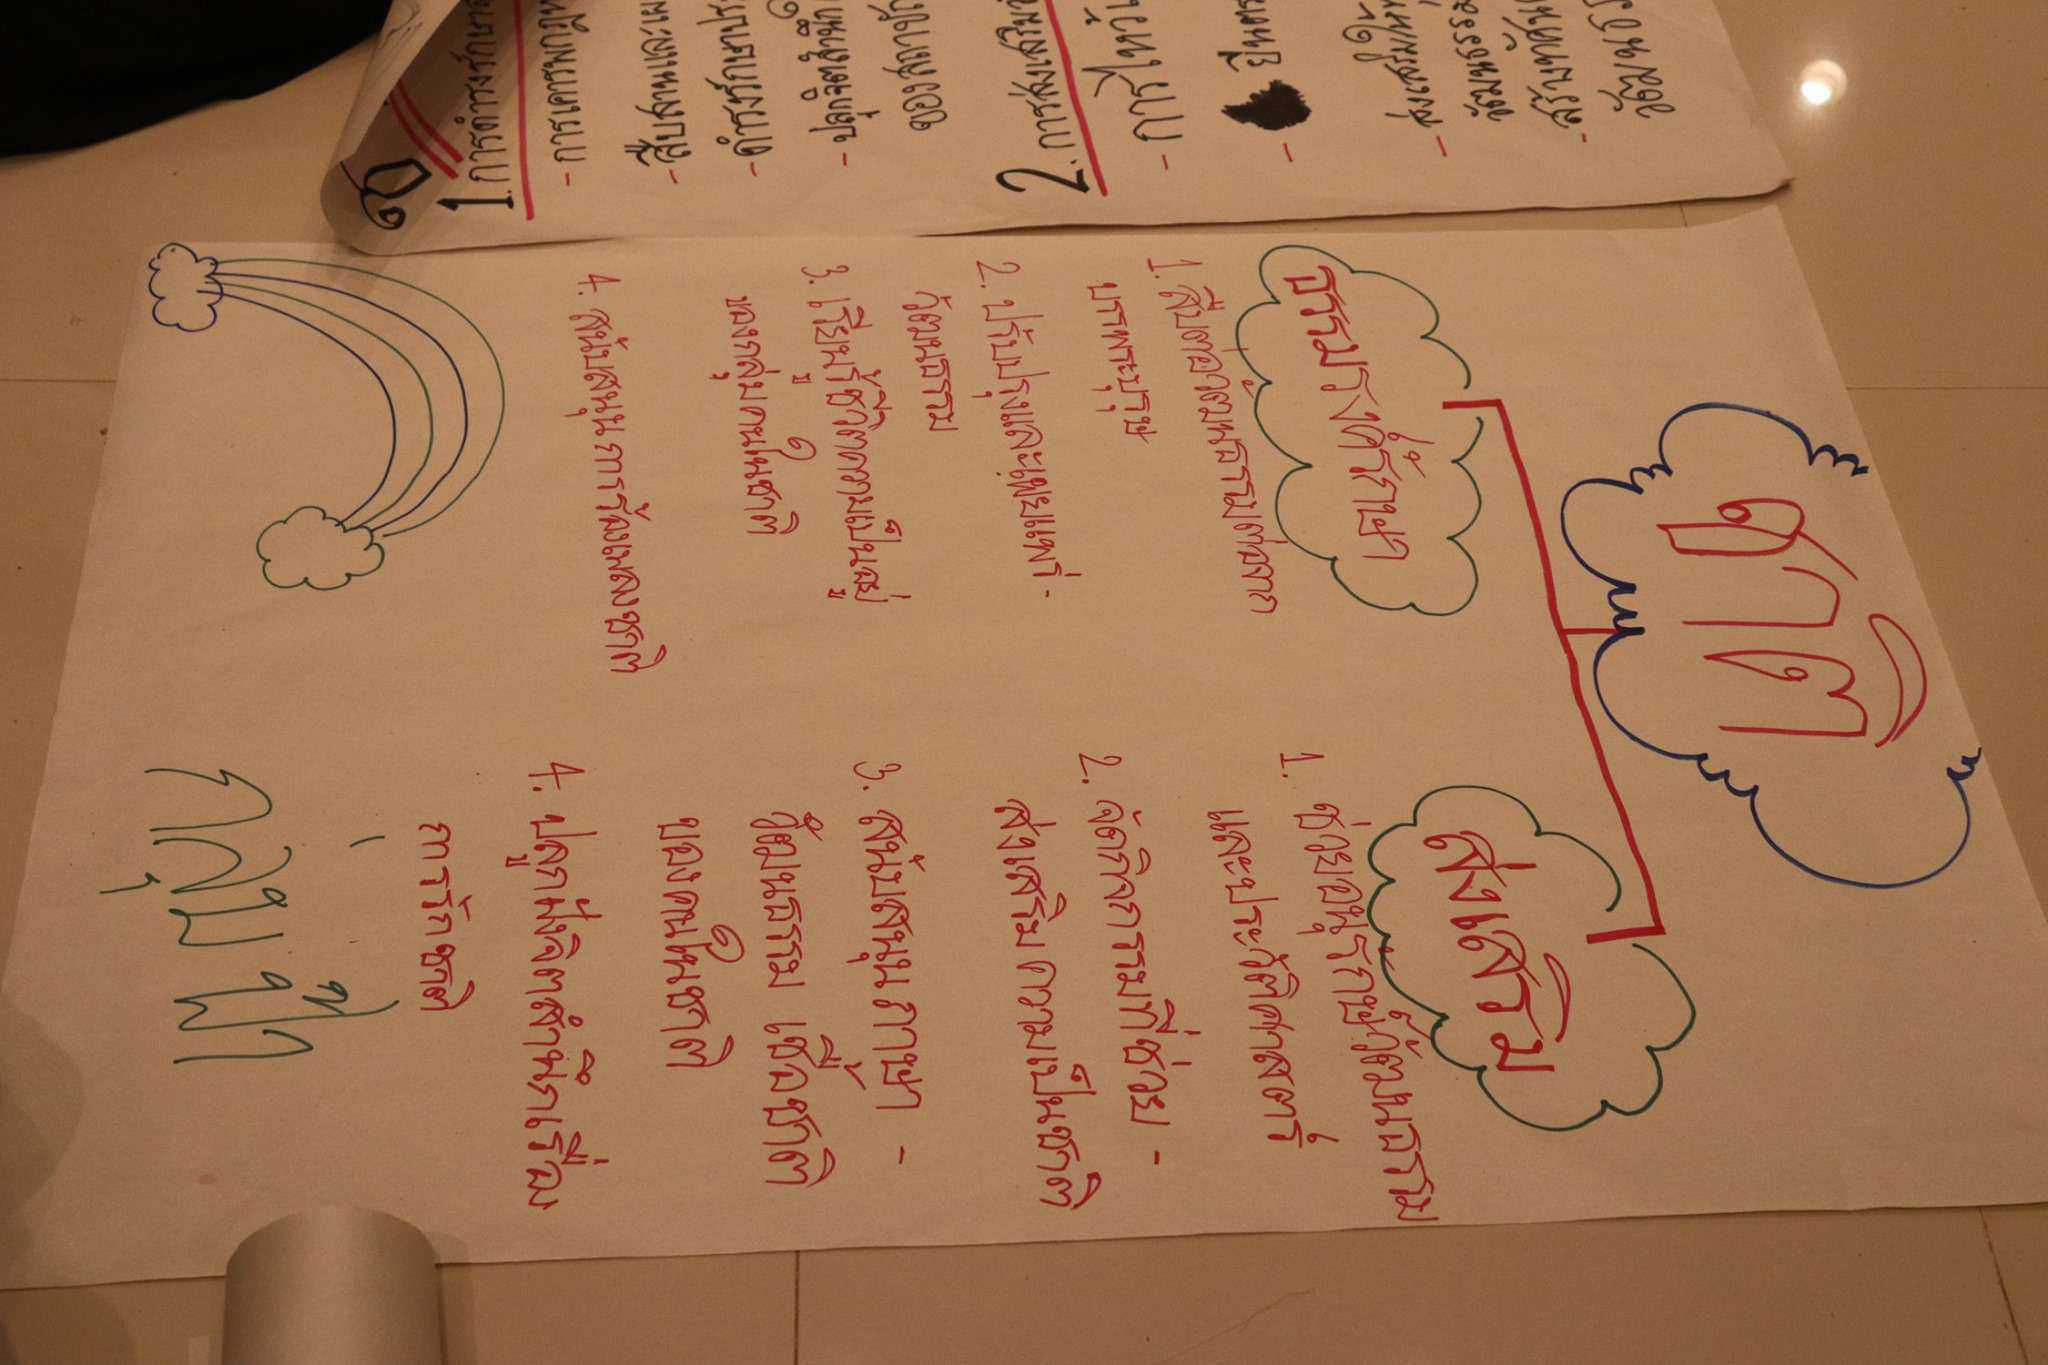 ชาติ
ธำรงรักษา
1. สืบต่อวัฒนธรรมต่อจาก
บรรพระบุรุษ
2. ปรับปรุงและเผยแพร่ -
วัฒนธรรม
3. เรียนรู้ชีวิตความเป็นอยู่
ของกลุ่มคนในชาติ
4. สนับสนุนการร้องเพลงชาติ
ส่งเสริม
1. ช่วยอนุรักษ์วัฒนธรรม
และประวัติศาสตร์
2. จัดกิจกรรมที่ช่วย -
ส่งเสริมความเป็นชาติ
3. สนับสนุนภาษา -
วัฒนธรรม เชื้อชาติ
ของคนในชาติ
4. ปลูกฝังจิตสำนึกเรื่อง
การรักชาติ
1. การดำรงรักษา
- การเคารพกฎ
- สืบสานและเผ
- ดำรงรักษาประ
- ปลุกจิตสำนึก
ของสถาบั
2. การส่งเสริม
- การไหว้
-
ยืนตร
- ส่งเสริม
วัฒนธรรม
- สร้าง
วัฒนธร